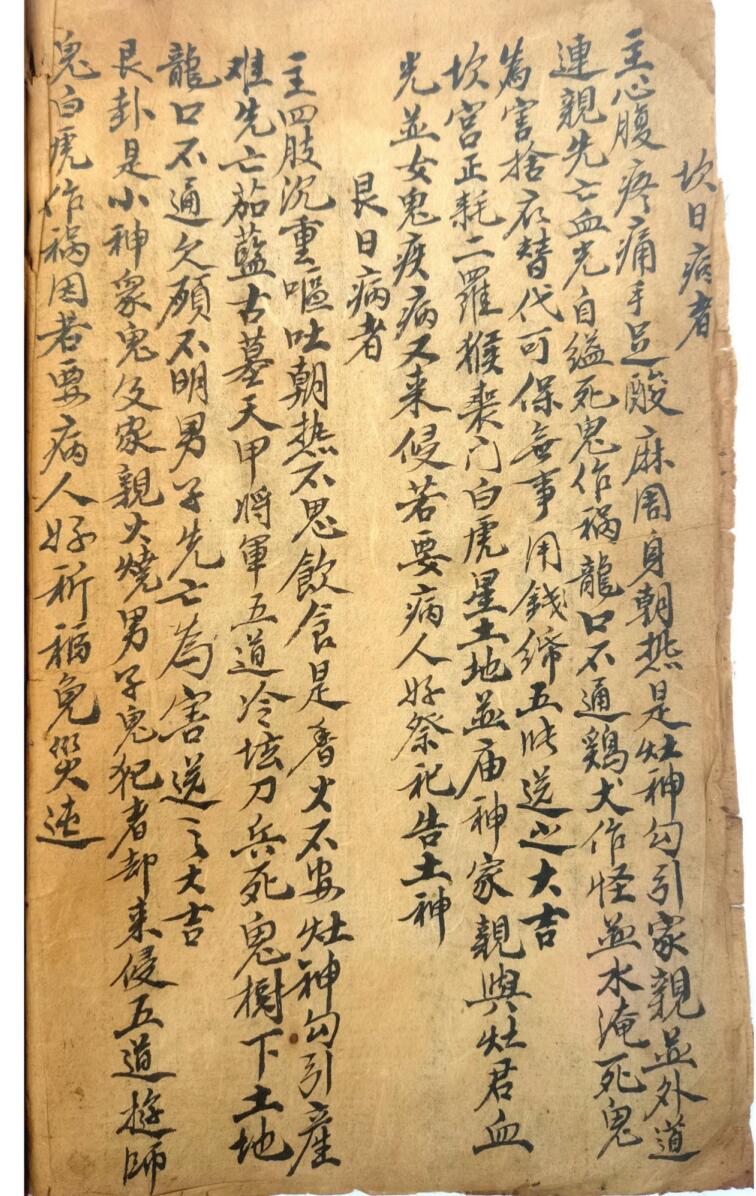 坎日病者
主心腹疼痛手足酸麻周身朝热是灶神勾引家親並外道
連親先亡血光自縊死鬼作祸龍口不通鷄犬作怪並水淹死鬼
為害捨衣替代可保無事用錢締五 送之大吉
坎宫正耗二羅猴喪门白虎星土地並庙神家親與灶君血
光並女鬼疾病又来侵若要病人好祭祀告土神
艮日病者
主四肢沉重嘔吐朝热不思飲食是香火不安灶神勾引産
难先亡茄藍古墓天甲將軍五道冷坛刀兵死鬼樹下土地
龍口不通欠願不明男子先亡為害送之大吉
艮卦是小神衆鬼及家親火燒男子鬼犯者却来侵五道遊師
鬼白虎作祸因若要病人好祈福免災迍